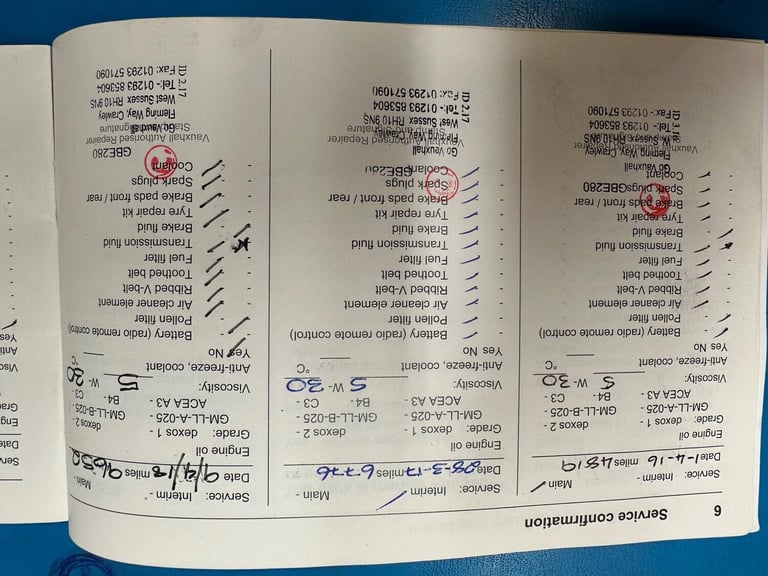 6 Service confirmation
Service: Interim - Main
Date 1-4-16 miles 4819
Engine oil
Grade: dexos 1 - dexos 2 -
GM-LL-A-025 - GM-LL-B-025 -
ACEA A3 - B4 - C3 -
Viscosity: 5 W- 30
Anti-freeze, coolant °C
Yes No
Battery (radio remote control)
Pollen filter
Air cleaner element
Ribbed V-belt
Toothed belt
Fuel filter
Transmission fluid
Brake fluid
Tyre repair kit
Brake pads front / rear
Spark plugs GBE280
Coolant
Go Vauxhall
Vauxhall Authorised Repairer
Fleming Way, Crawley
W. Sussex RH10 9NS
Tel:- 01293 853604
Fax:- 01293 571090
ID 3.16
Service: Interim Main -
Date 28-3-17 miles 6776
Engine oil
Grade: dexos 1 - dexos 2 -
GM-LL-A-025 - GM-LL-B-025 -
ACEA A3 - B4 - C3 -
Viscosity: 5 W- 30
Anti-freeze, coolant °C
Yes No
Battery (radio remote control)
Pollen filter
Air cleaner element
Ribbed V-belt
Toothed belt
Fuel filter
Transmission fluid
Brake fluid
Tyre repair kit
Brake pads front / rear
Spark plugs
Coolant GBE280
Go Vauxhall
Vauxhall Authorised Repairer
Stamp and Signature
Fleming Way, Crawley
West Sussex RH10 9NS
Tel:- 01293 853604
Fax: 01293 571090
ID 2.17
Service: Interim - Main -
Date 9/4/18 miles 9652
Engine oil
Grade: dexos 1 - dexos 2 -
GM-LL-A-025 - GM-LL-B-025 -
ACEA A3 - B4 - C3 -
Viscosity: 5 W- 30
Anti-freeze, coolant °C
Yes No
Battery (radio remote control)
Pollen filter
Air cleaner element
Ribbed V-belt
Toothed belt
Fuel filter
Transmission fluid
Brake fluid
Tyre repair kit
Brake pads front / rear
Spark plugs
Coolant
GBE280
Vauxhall Authorised Repairer
Go Vauxhall
Fleming Way, Crawley
West Sussex RH10 9NS
Tel:- 01293 853604
Fax: 01293 571090
ID 2.17
Date
Yes